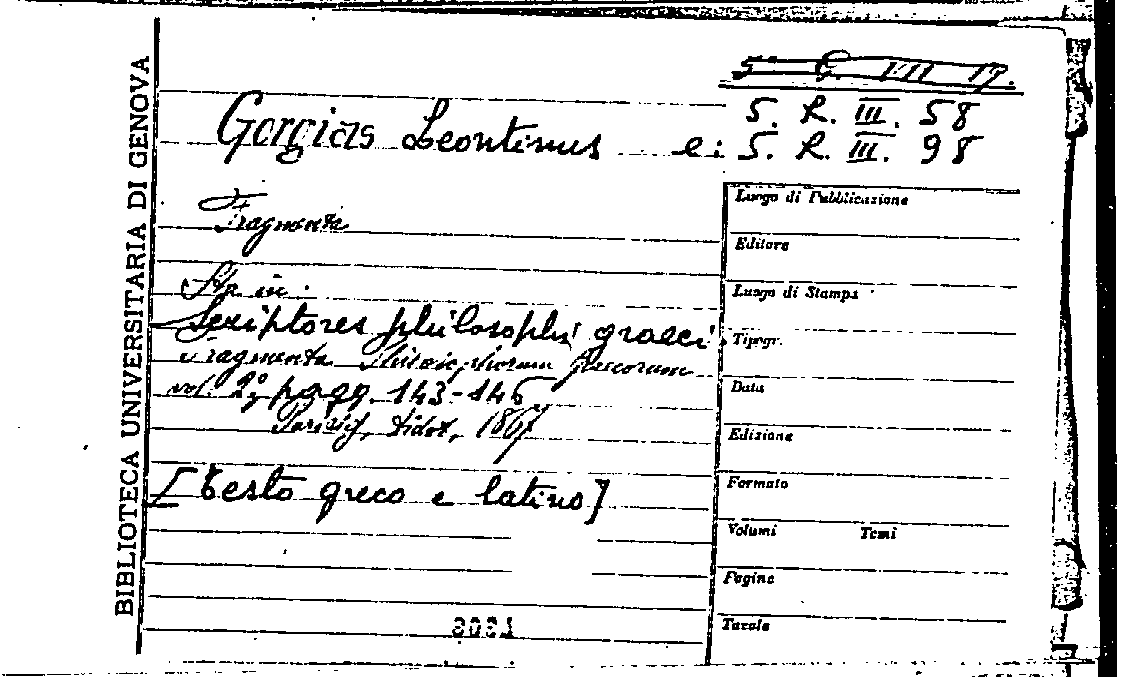 BIBLIOTECA UNIVERSITARIA DI GENOVA
5 G. VII 19.
Gorgias Leontinus e: S. R. III. 58
S. R. III. 98
Fragmenta
Sta in:
Scriptores philosophi graeci.
Fragmenta Philosophorum graecorum
vol. 2º, pagg. 143-146
Parisiis, Didot, 1867
[testo greco e latino]
Luogo di Pubblicazione
Editore
Luogo di Stampa
Tipogr.
Data
Edizione
Formato
Volumi Tomi
Pagine
Tavole